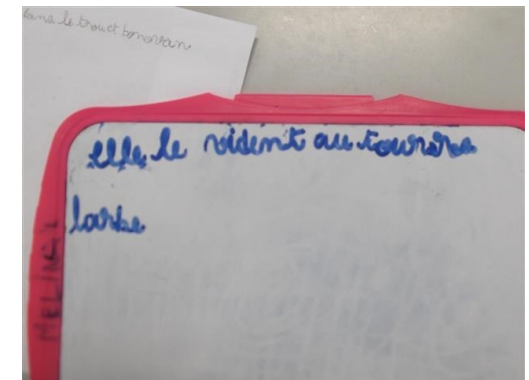 dans le trou et bonovan
elle le vident au tourere
larbe